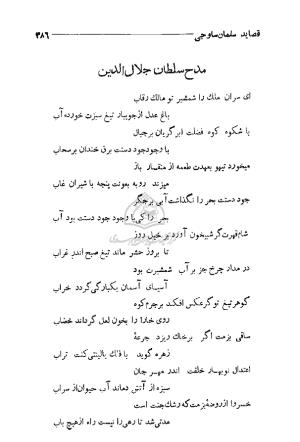 قصاید سلمان ساوجی ۳۸۶
مدح سلطان جلال الدین
ای سران ملک را شمشیر تو مالک رقاب
باغ عدل از جویبار تیغ سبزت خورده آب
با شکوه کوه فضلت ابر گریان بر جبال
با وجود جود دستت برق خندان بر سحاب
میخورد تیهو بعهدت طعمه از منقار باز
میزند روبه بعونت پنجه با شیران غاب
جود دستت بحر را نگذاشت آبی بر جگر
بحر را کی با وجود جود دستت بود آب
شام قهرت گر شبیخون آورد بر خیل روز
تا بروز حشر ماند تیغ صبح اندر غراب
در مدار چرخ جز بر آب شمشیرت بود
آسیای آسمان یکبارگی گردد خراب
گوهر تیغ تو گر عکس افکند بر جرم کوه
روی خارا را بخون لعل گرداند خضاب
ساقی بزمت اگر بر خاک ریزد جرعهٔ
زهره گوید با فلک یا لیتنی کنت تراب
اعتدال نوبهار خلقت اندر مهر جان
سبزه از آتش دماند آب حیوان از سراب
خسروا از روضهٔ بزمت که رشک جنت است
مدتی شد تا رهی را نیست راه از هیچ باب